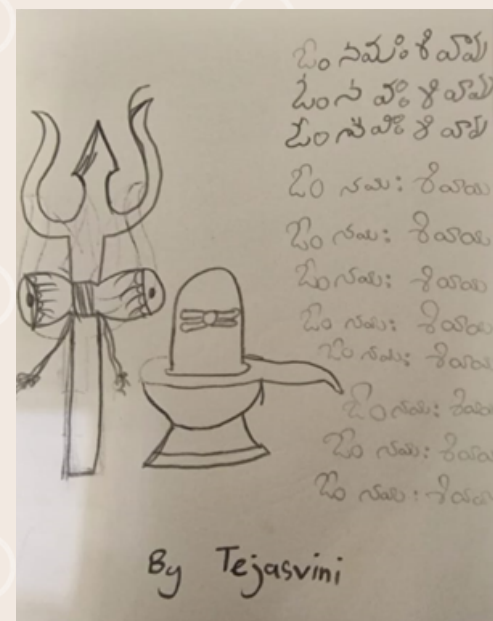 ఓం నమః శివాయ
ఓం న వః శివాయ
ఓం నమః శివాయ
ఓం నమః శివాయ
ఓం నమః శివాయ
ఓం నమః శివాయ
ఓం నమః శివాయ
ఓం నమః శివాయ
ఓం నమః శివాయ
ఓం నమః శివాయ
ఓం నమః శివాయ
By Tejasvini